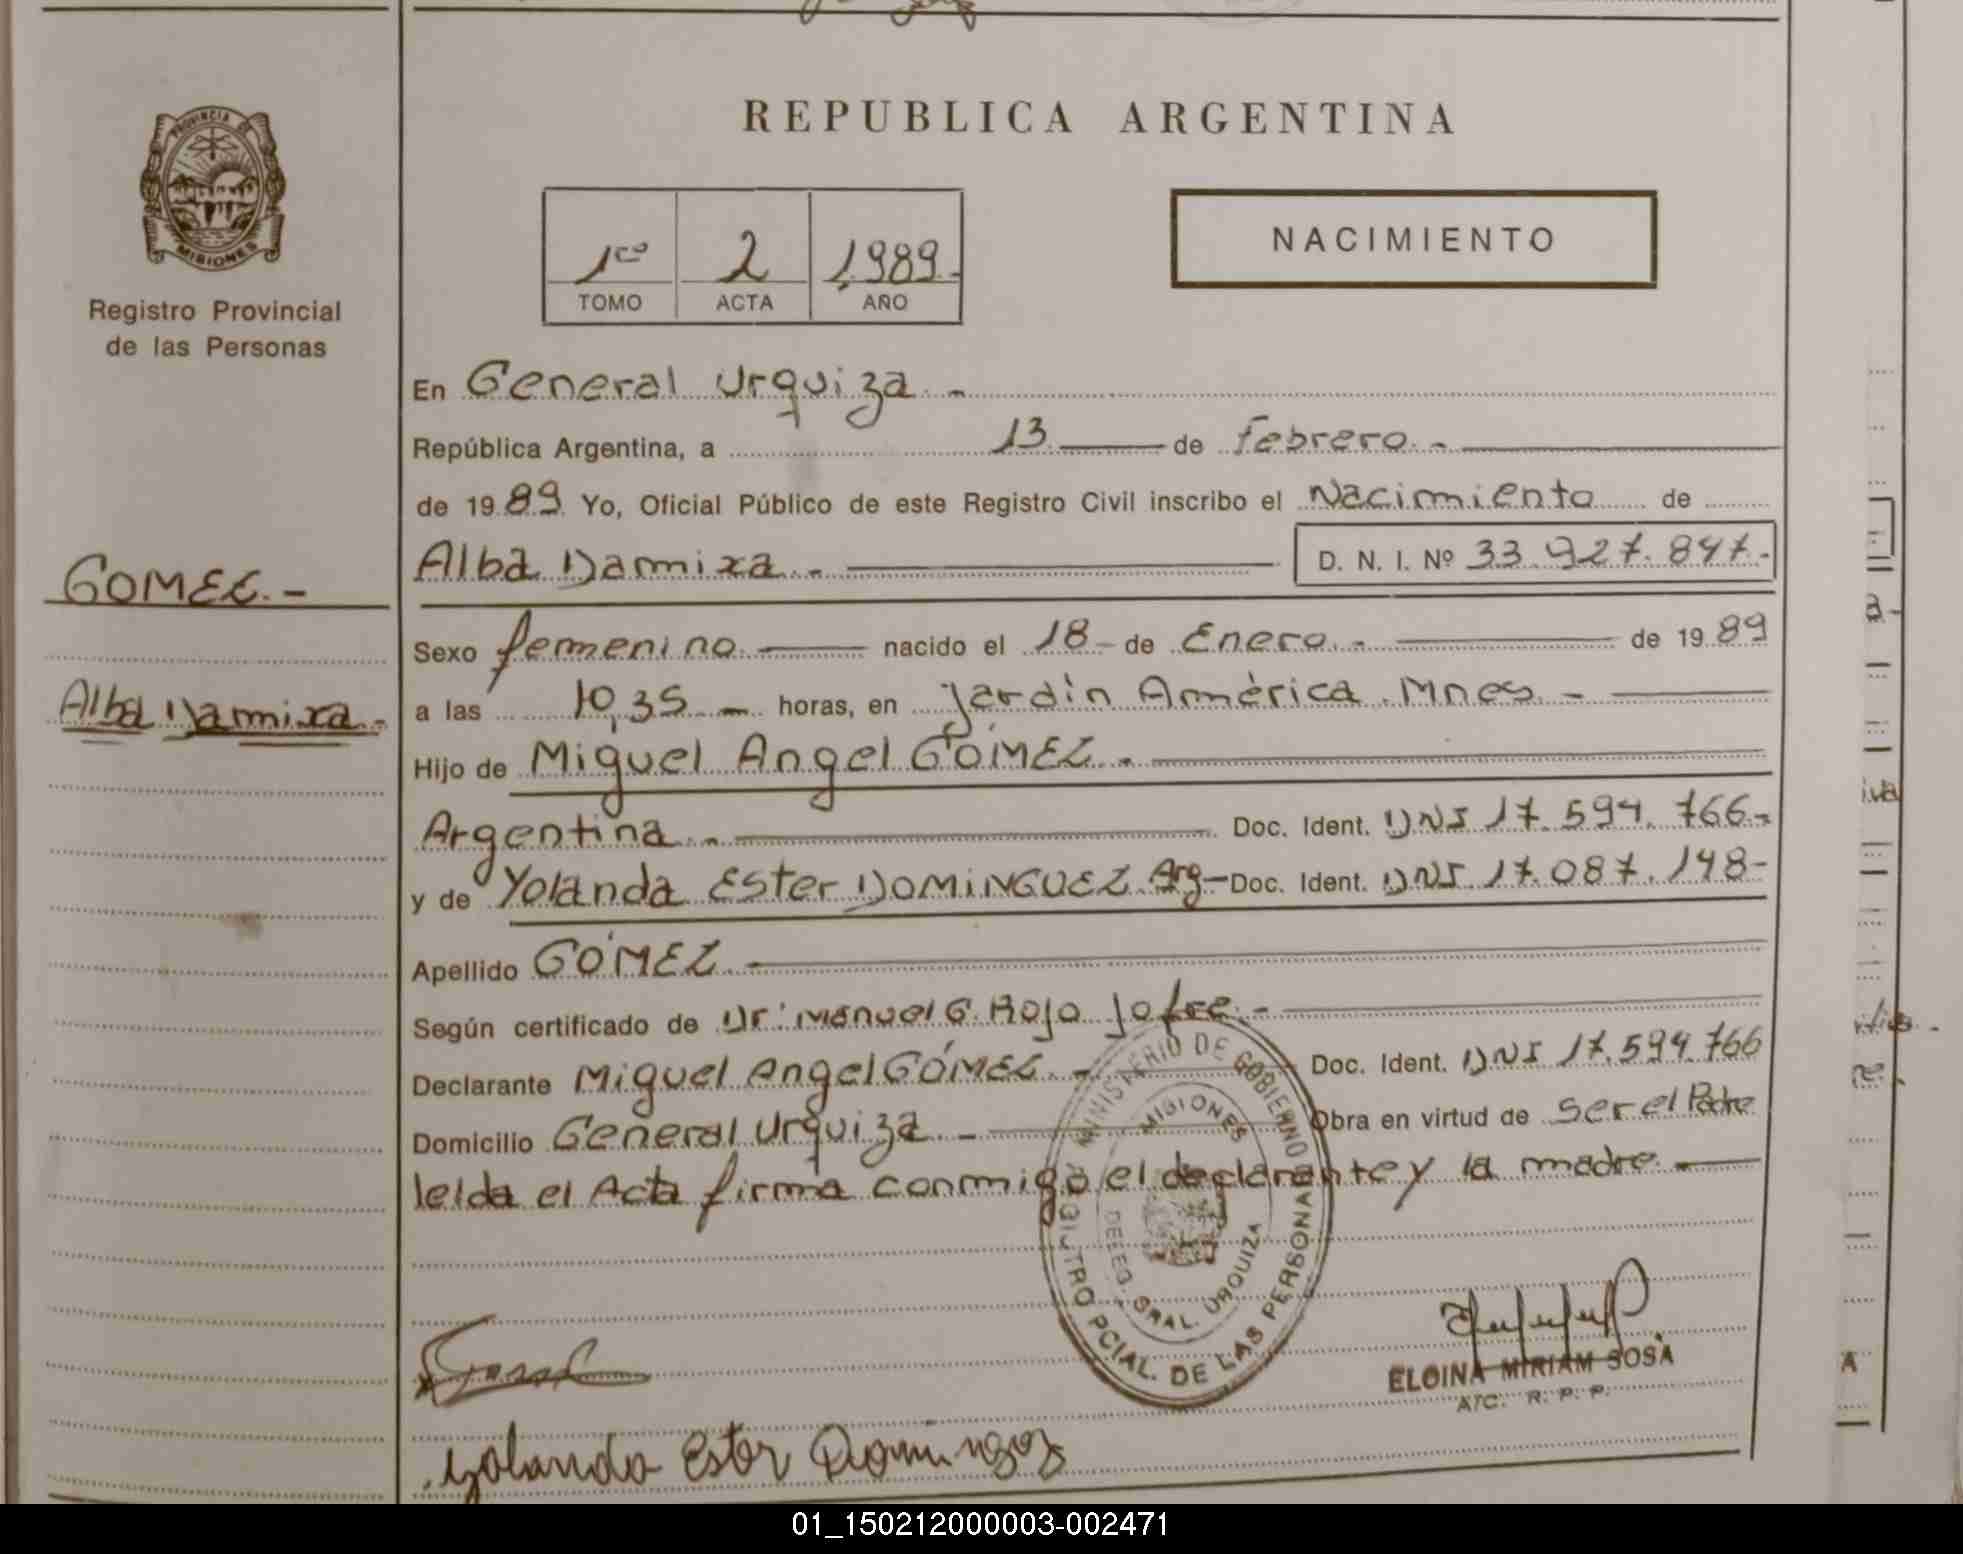 REPUBLICA ARGENTINA
PROVINCIA DE
MISIONES
Registro Provincial
de las Personas
1ro 2 1.989.-
TOMO ACTA AÑO
NACIMIENTO
En General Urquiza.-
República Argentina, a 13 de febrero.-
de 1989 Yo, Oficial Público de este Registro Civil inscribo el Nacimiento de
Alba Damixa.- D. N. I. Nº 33.927.847.-
GOMEZ.-
Alba Damixa.-
Sexo femenino nacido el 18- de Enero.- de 1989
a las 10,35 horas, en Jardin América. Mnes.-
Hijo de Miguel Angel GÓMEZ.-
Argentina.- Doc. Ident. DNI 17.594.766-
y de Yolanda Ester DOMINGUEZ Arg- Doc. Ident. DNI 17.087.148-
Apellido GÓMEZ
Según certificado de Dr. Manuel G. Rojo Jofre.-
Declarante Miguel Angel GÓMEZ.- Doc. Ident. DNI 17.594.766
Domicilio General Urquiza.- Obra en virtud de ser el Padre
leida el Acta firma conmigo el declarante y la madre.
MINISTERIO DE GOBIERNO
REGISTRO PCIAL. DE LAS PERSONAS
MISIONES
DELEG. GRAL. URQUIZA
ELOINA MIRIAM SOSA
A/C. R. P. P.
Yolanda Ester Dominguez
01_150212000003-002471